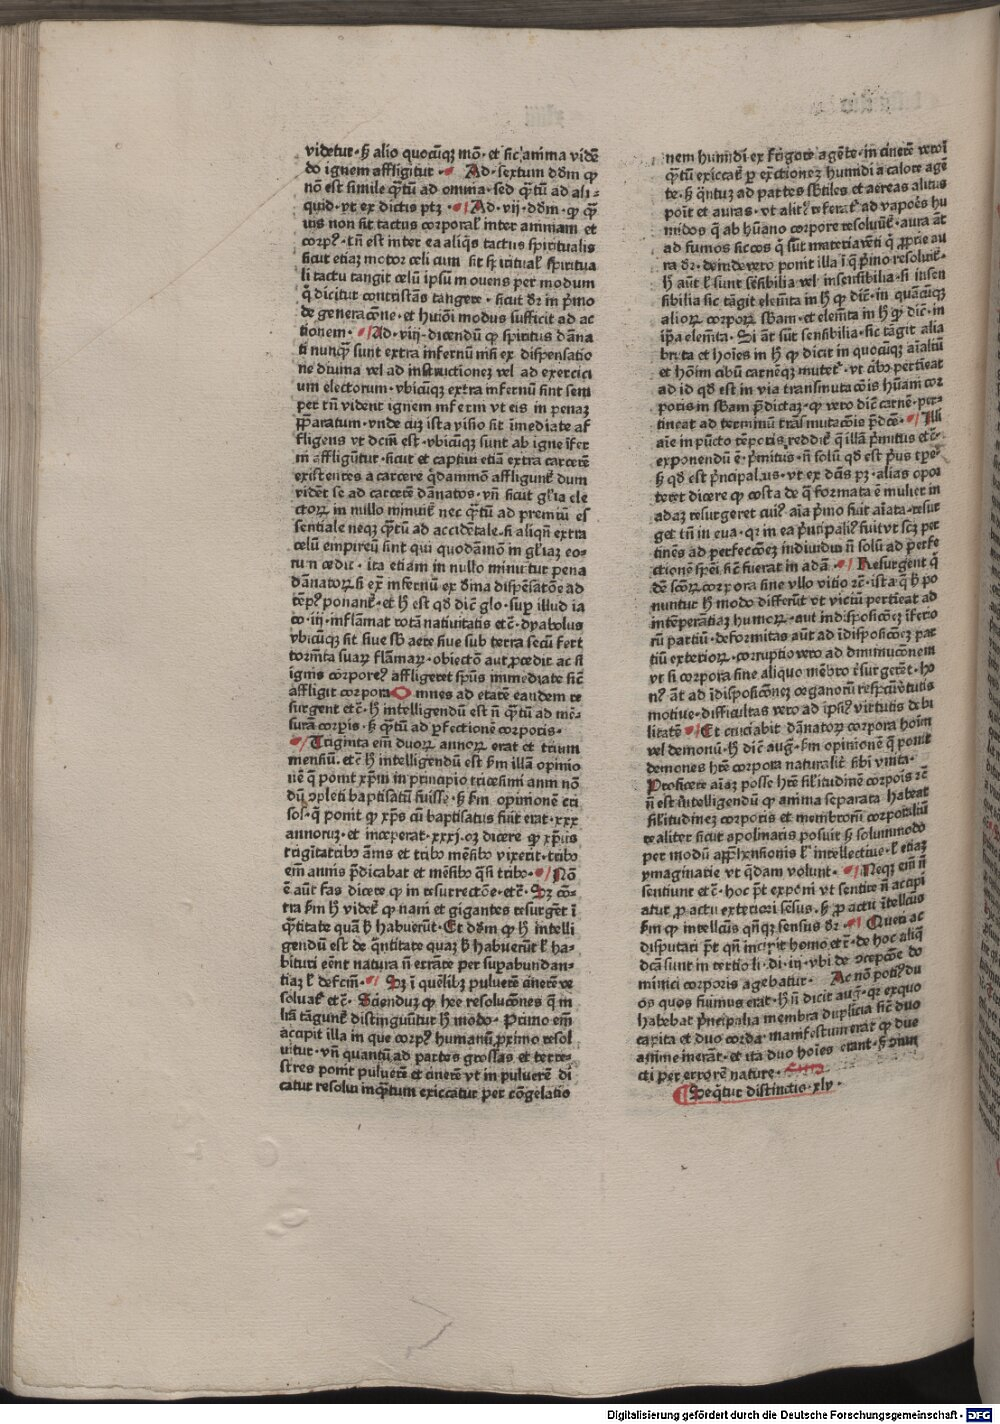 videtur· ꝫ alio quocūqꝫ mō· et sic anima vidē
do ignem affligitur · Ad· sextum dōm ꝙ
nō est simile q̄tū ad omnia· sed q̄tū ad ali-
quid· vt ex dictis ptꝫ · Ad· vij· dōm· ꝙ q̄ꝫ
uis non sit tactus corporal' inter animam et
corpꝰ· tn̄ est inter ea aliq̄s tactus spiritualis
sicut etiaꝫ motor celi cum sit spiritual' spiritua
li tactu tangit celū ipsum mouens per modum
q̄ dicitur contristās tangere · sicut dr̄ in p̄mo
de generacōne· et huiōi modus sufficit ad ac
tionem· Ad· viij· dicendū ꝙ spiritus dāna
ti nunqꝫ sunt extra infernū nisi ex dispensatio
ne diuina vel ad instructioneꝫ vel ad exercici
um electorum· vbicūqꝫ extra infernū sint sem
per tn̄ vident ignem inferni vt eis in penaꝫ
p̄paratum· vnde cuꝫ ista visio sit īmediate af
fligens vt dcm̄ est· vbicūqꝫ sunt ab igne īfer
ni affligūtur· sicut et captiui etiā extra carcerē
existentes a carcere q̄dāmō affligunt̄ dum
vidēt se ad carcerē dānatos· vn̄ sicut gl'ia ele
ctorꝝ in nullo minuit̄ nec q̄tū ad premiū es
sentiale neqꝫ q̄tū ad accidētale· si aliqn̄ extra
celū empireū sint qui quodāmō in gl'iaꝫ eo-
rū cedit· ita etiam in nullo minuitur pena
dānatorꝝ si ex infernū ex dīma dispēsatōe ad
tēpꝰ ponant̄· et ꝫ est qd̄ dic̄ glo· suꝑ illud ia
co· iij· inflāmat rotā natiuitatis etc̄· dyabolus
vbicūqꝫ sit siue sb̄ aere siue sub terra secū fert
tormēta suaꝝ flāmaꝝ· obiectō aut ꝓcedit ac si
ignis corporeꝰ affligeret spūs immediate sic̄
affligit corpora Omnes ad etatē eandem re
surgent etc̄· ꝫ intelligendū est n̄ q̄tū ad mē-
surā corpis· ꝫ q̄tū ad ꝑfectionē corporis·
Triginta em̄ duorꝝ annorꝝ erat et trium
mensiū· etc̄ ꝫ intelligendū est ꝫm illā opinio
nē q̄ ponit xp̄m in principio tricesimi anni nō
dū ꝯpleti baptisatū fuisse· ꝫ ꝫm opinionē cri
sos· q̄ ponit ꝙ xp̄s cū baptisatus fuit erat· xxx
annoruꝫ· et inceperat· xxxj· oꝫ dicere ꝙ xp̄us
trigītatribꝰ ānis et tribꝰ mēsibꝰ vixerit· tribꝰ
em̄ annis p̄dicabat et mēsibꝰ q̄si tribꝰ· Nō
ē aūt fas dicere ꝙ in resurrectōe· etc̄· Sꝫ cō-
tra ꝫm ꝫ videt̄ ꝙ nani et gigantes resurgēt ī
q̄titate quā ꝫ habuerūt· Et dōm ꝙ ꝫ intelli
gendū est de q̄ntitate quaꝫ ꝫ habuerūt l' ha-
bituri eēnt natura n̄ errāte per supabundan-
tiaꝫ l' defcm̄· Sꝫ ī quēlibꝫ puluerē cinerē ve
soluat̄ etc̄· Sciendūꝫ ꝙ hee resolucōnes q̄ in
lr̄ā tāgunt̄ distinguūtur ꝫ modo· Primo em̄
accipit illa in que corpꝰ humanū ꝓximo resol
uitur· vn̄ quantū ad partes grossas et terre-
stres ponit puluerē et cinerē vt in puluerē di
catur resolui inq̄tum exiccatur per cōgelatio
nem humidi ex frigore agēte· in cinerē vero ī
q̄tū exiccat̄ ꝑ exctionez humidi a calore agē
te· ꝫ q̄ntuꝫ ad partes sb̄tiles et aereas alitus
poīt et auras· vt alitꝰ referat̄ ad vapoēs hu
midos q̄ ab hūano corpore resoluūt̄· aura āt
ad fumos siccos q̄ sūt materia vēti q̄ ꝓprie au
ra dr̄· deinde vero ponit illa ī q̄ p̄mo resoluit̄·
ꝫ aūt l' sunt sēsibilia vel insensibilia· si insen
sibilia sic tāgit elem̄ta in ꝫ ꝙ dic̄· in quācūqꝫ
aliorꝝ corporꝝ sb̄am· et elem̄ta in ꝫ ꝙ dic̄· in
ip̄a elem̄ta· Si āt sūt sensibilia· sic tāgit alia
bruta et hoīes in ꝫ ꝙ dicit in quocūqꝫ aīaliū
et hōim cibū carnēqꝫ mutet̄· vt cibꝰ pertīeat
ad id qd̄ est in via transmutacōis hūani cor
poris in sb̄am p̄dictaꝫ· ꝙ vero dic̄ carnē· per-
tineat ad terminū trāsmutacōis p̄dce· Illi
aīe in pūcto tēporis reddit̄ q̄ illā p̄mitus etc̄·
exponendū ē· p̄mitus· n̄ solū qd̄ est p̄us tꝑe·
ꝫ qd̄ est p̄ncipalius· vt ex dcis pꝫ· alias opor
teret dicere ꝙ costa de q̄ formata ē mulier in
adaꝫ resurgeret cuiꝰ aīa p̄mo fuit aīata· resur
get tn̄ in eua· qꝛ in ea p̄ncipaliꝰ fuit vt scꝫ per
tinēs ad perfeccōeꝫ indiuidui n̄ solū ad perfe
ctionē spēi sic̄ fuerat in adā· Resurgent q̄
dē scōrꝝ corpora sine vllo vitio re᷒· ista q̄ ꝫ po
nuntur ꝫ modo differūt vt viciū pertieat ad
intēperātiaꝫ humorꝝ· aut indisposicōeꝫ īferio
rū partiū· deformitas aūt ad īdisposicōeꝫ par
tiū exteriorꝝ· corruptio vero ad diminucōnem
vt si corpora sine aliquo mēbro resurgerēt· ho
nꝰ āt ad īdisposicōneꝫ organorū respc̄u v̄tutis
motiue· difficultas vero ad ipsiꝰ virtutis debi
litatē Et cruciabit dānatorꝝ corpora hoīm
vel demonū· ꝫ dic̄ auḡ· ꝫm opinionē q̄ ponit
demones hr̄e corpora naturalit̄ sibi vnita·
Proficere aīaꝫ posse hr̄e sil'itudinē corpois re᷒
n̄ est intelligendū ꝙ anima separata habeat
sil'itudineꝫ corporis et membrorū corporaliū
realiter sicut apolinaris posuit ꝫ solummodo
per modū app̄hēsionis l' intellectiue· l' etiaꝫ
ymaginatie vt q̄dam volunt· Neqꝫ em̄ n̄
sentiunt etc̄· hoc p̄t exponi vt sentire n̄ accipi
atur ꝓ actu exteriori sēsus· ꝫ ꝓ actu ītellcūs
ꝫm ꝙ intellcūs qn̄qꝫ sensus dr̄· Queri ac
disputari p̄t qn̄ incipit homo etc̄· de hoc aliq̄
dcā sunt in tertio li· di· iij· vbi de ꝯcepcōne do
minici corporis agebatur· Ac nō potiꝰ du
os quos fuimus erat· ꝫ n̄ dicit auḡ· qꝛ exquo
habebat p̄ncipalia membra duplicia sic̄ duo
capita et duo corda manifestum erat ꝙ due
anime inerāt· et ita duo hoīes erant· ꝫ ꝯiun
cti per errorē nature·
Seq̄tur distinctio· xlv·
Digitalisierung gefördert durch die Deutsche Forschungsgemeinschaft - DFG